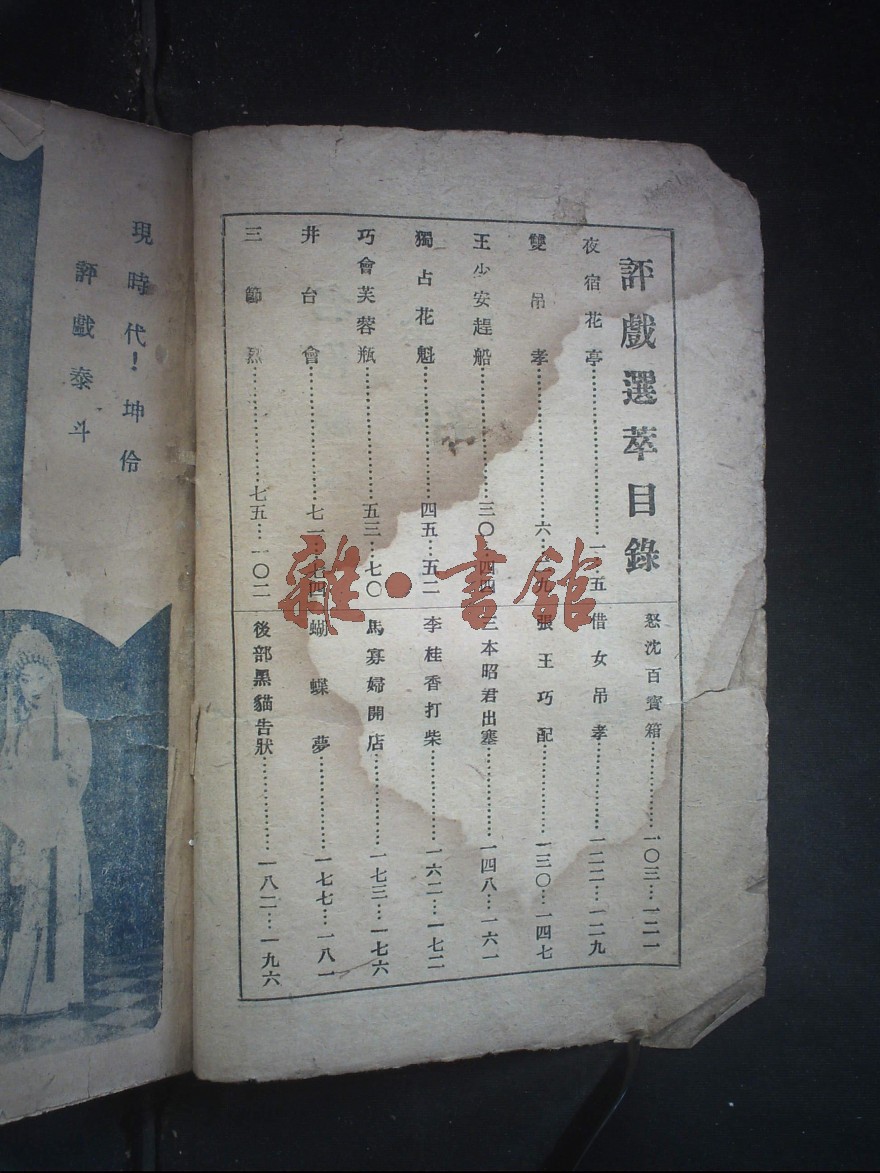 評戲選萃目錄
夜宿花亭……一…五
雙吊孝……六…九
王少安趕船……三〇…四四
獨占花魁……四五…五二
巧會芙蓉瓶……五三…七〇
井台會……七一…七四
三節烈……七五…一〇二
怒沈百寶箱……一〇三…一二一
借女吊孝……一二二…一二九
張王巧配……一三〇…一四七
三本昭君出塞……一四八…一六一
李桂香打柴……一六二…一七二
馬寡婦開店……一七三…一七六
蝴蝶夢……一七七…一八一
後部黑貓告狀……一八二…一九六
現時代！坤伶
評戲泰斗
雜·書館